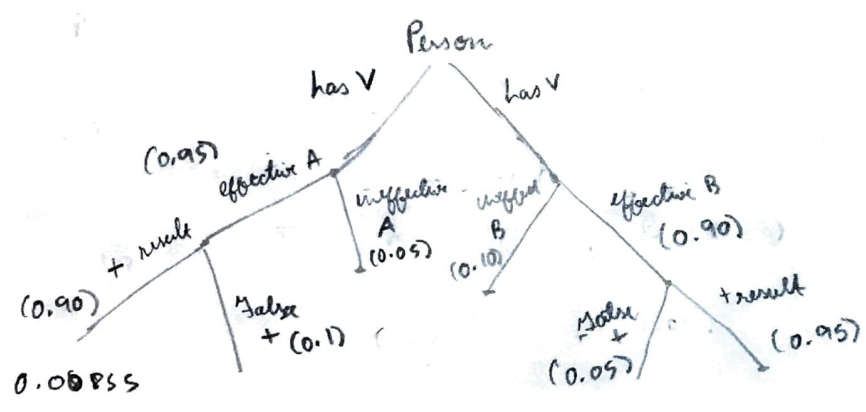 Person
has V
has V
(0.95)
effective A
ineffective
A
(0.05)
B
(0.10)
effective B
(0.90)
+ result
(0.90)
False
+ (0.1)
False
+
(0.05)
+ result
(0.95)
0.00855